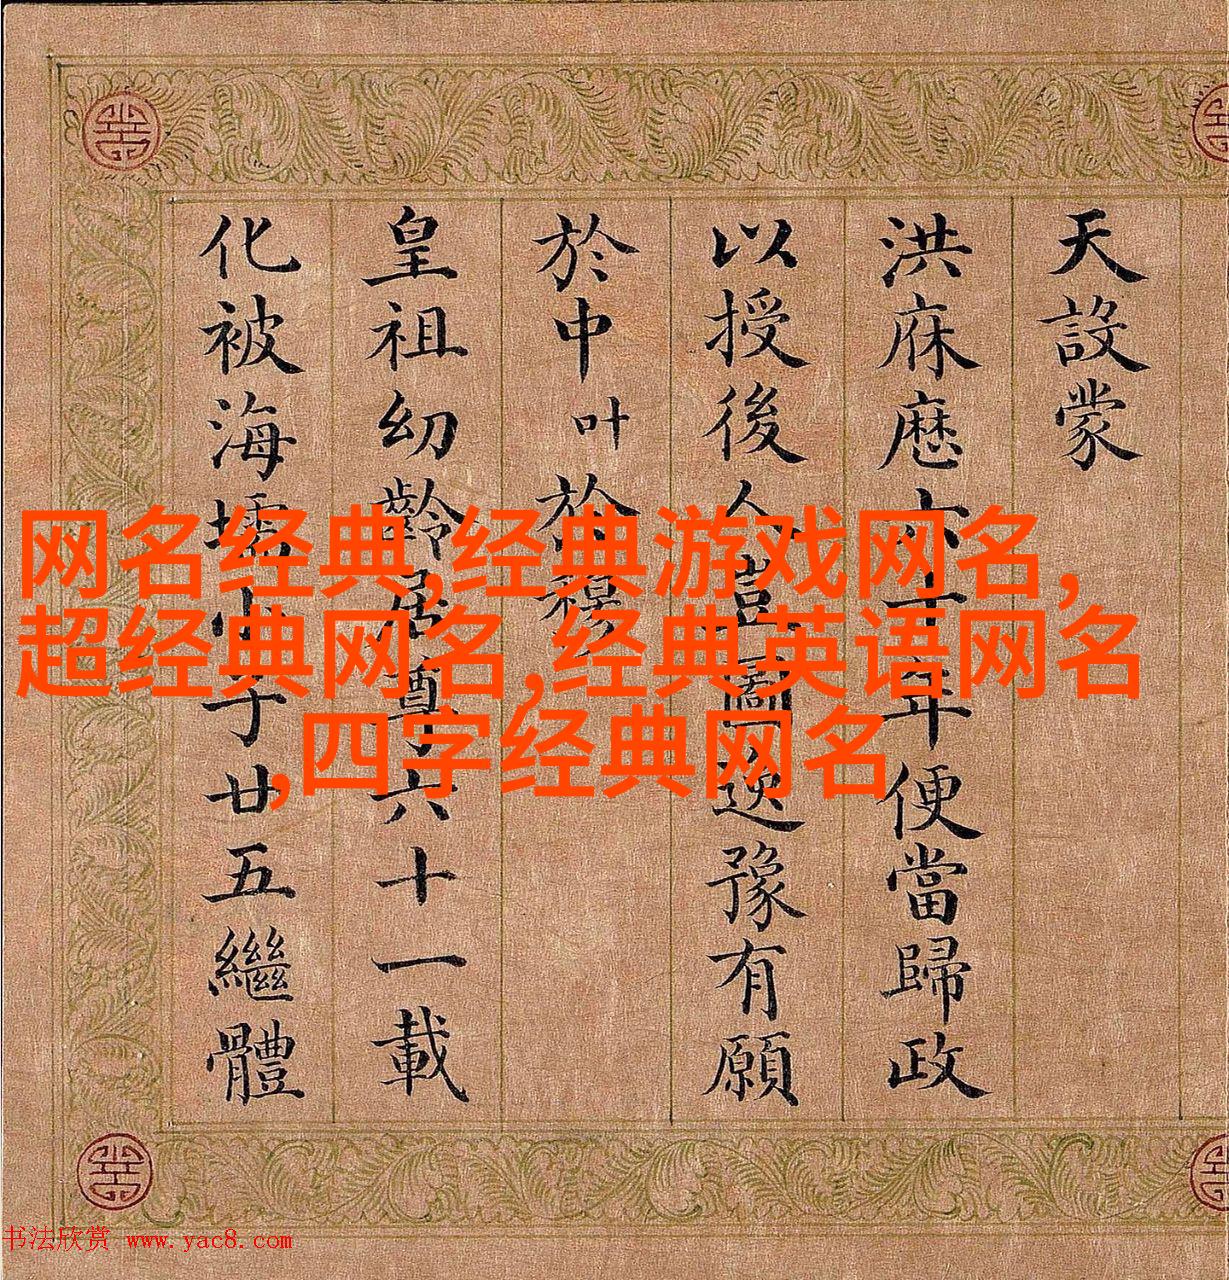 天設蒙
洪庥歷六十年便當歸政
以授後人豈圖逸豫有願
於中叶於穆
皇祖幼齡居尊六十一載
化被海壖小子廿五繼體
网名经典,经典游戏网名,
超经典网名,经典英语网名
,四字经典网名
书法欣赏 www.yac8.com